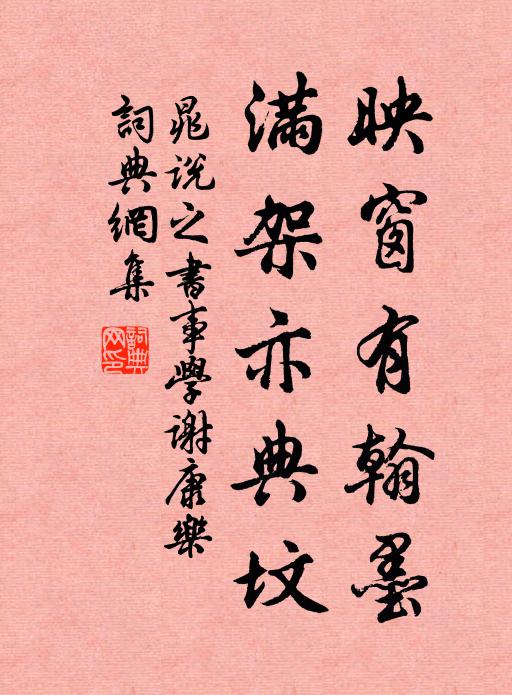 映窗有翰墨
滿架亦典墳
晁說之書事學謝康樂
詞典網集
詞典
网印